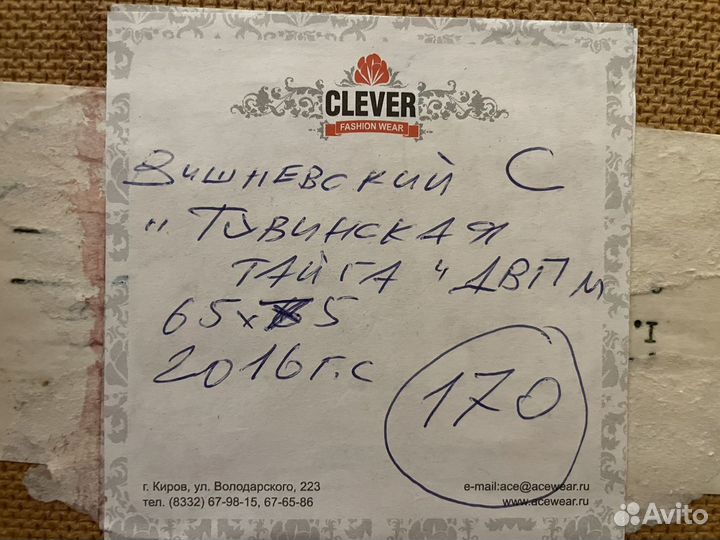 CLEVER
FASHION WEAR
Вишневский С
"Тувинская
тайга" ДВП м
65х 5
2016 г. с
170
г. Киров, ул. Володарского, 223
тел. (8332) 67-98-15, 67-65-86
e-mail:ace@acewear.ru
www.acewear.ru
Avito